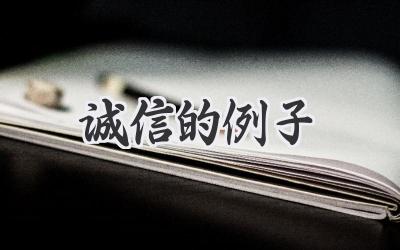 诚信的例子